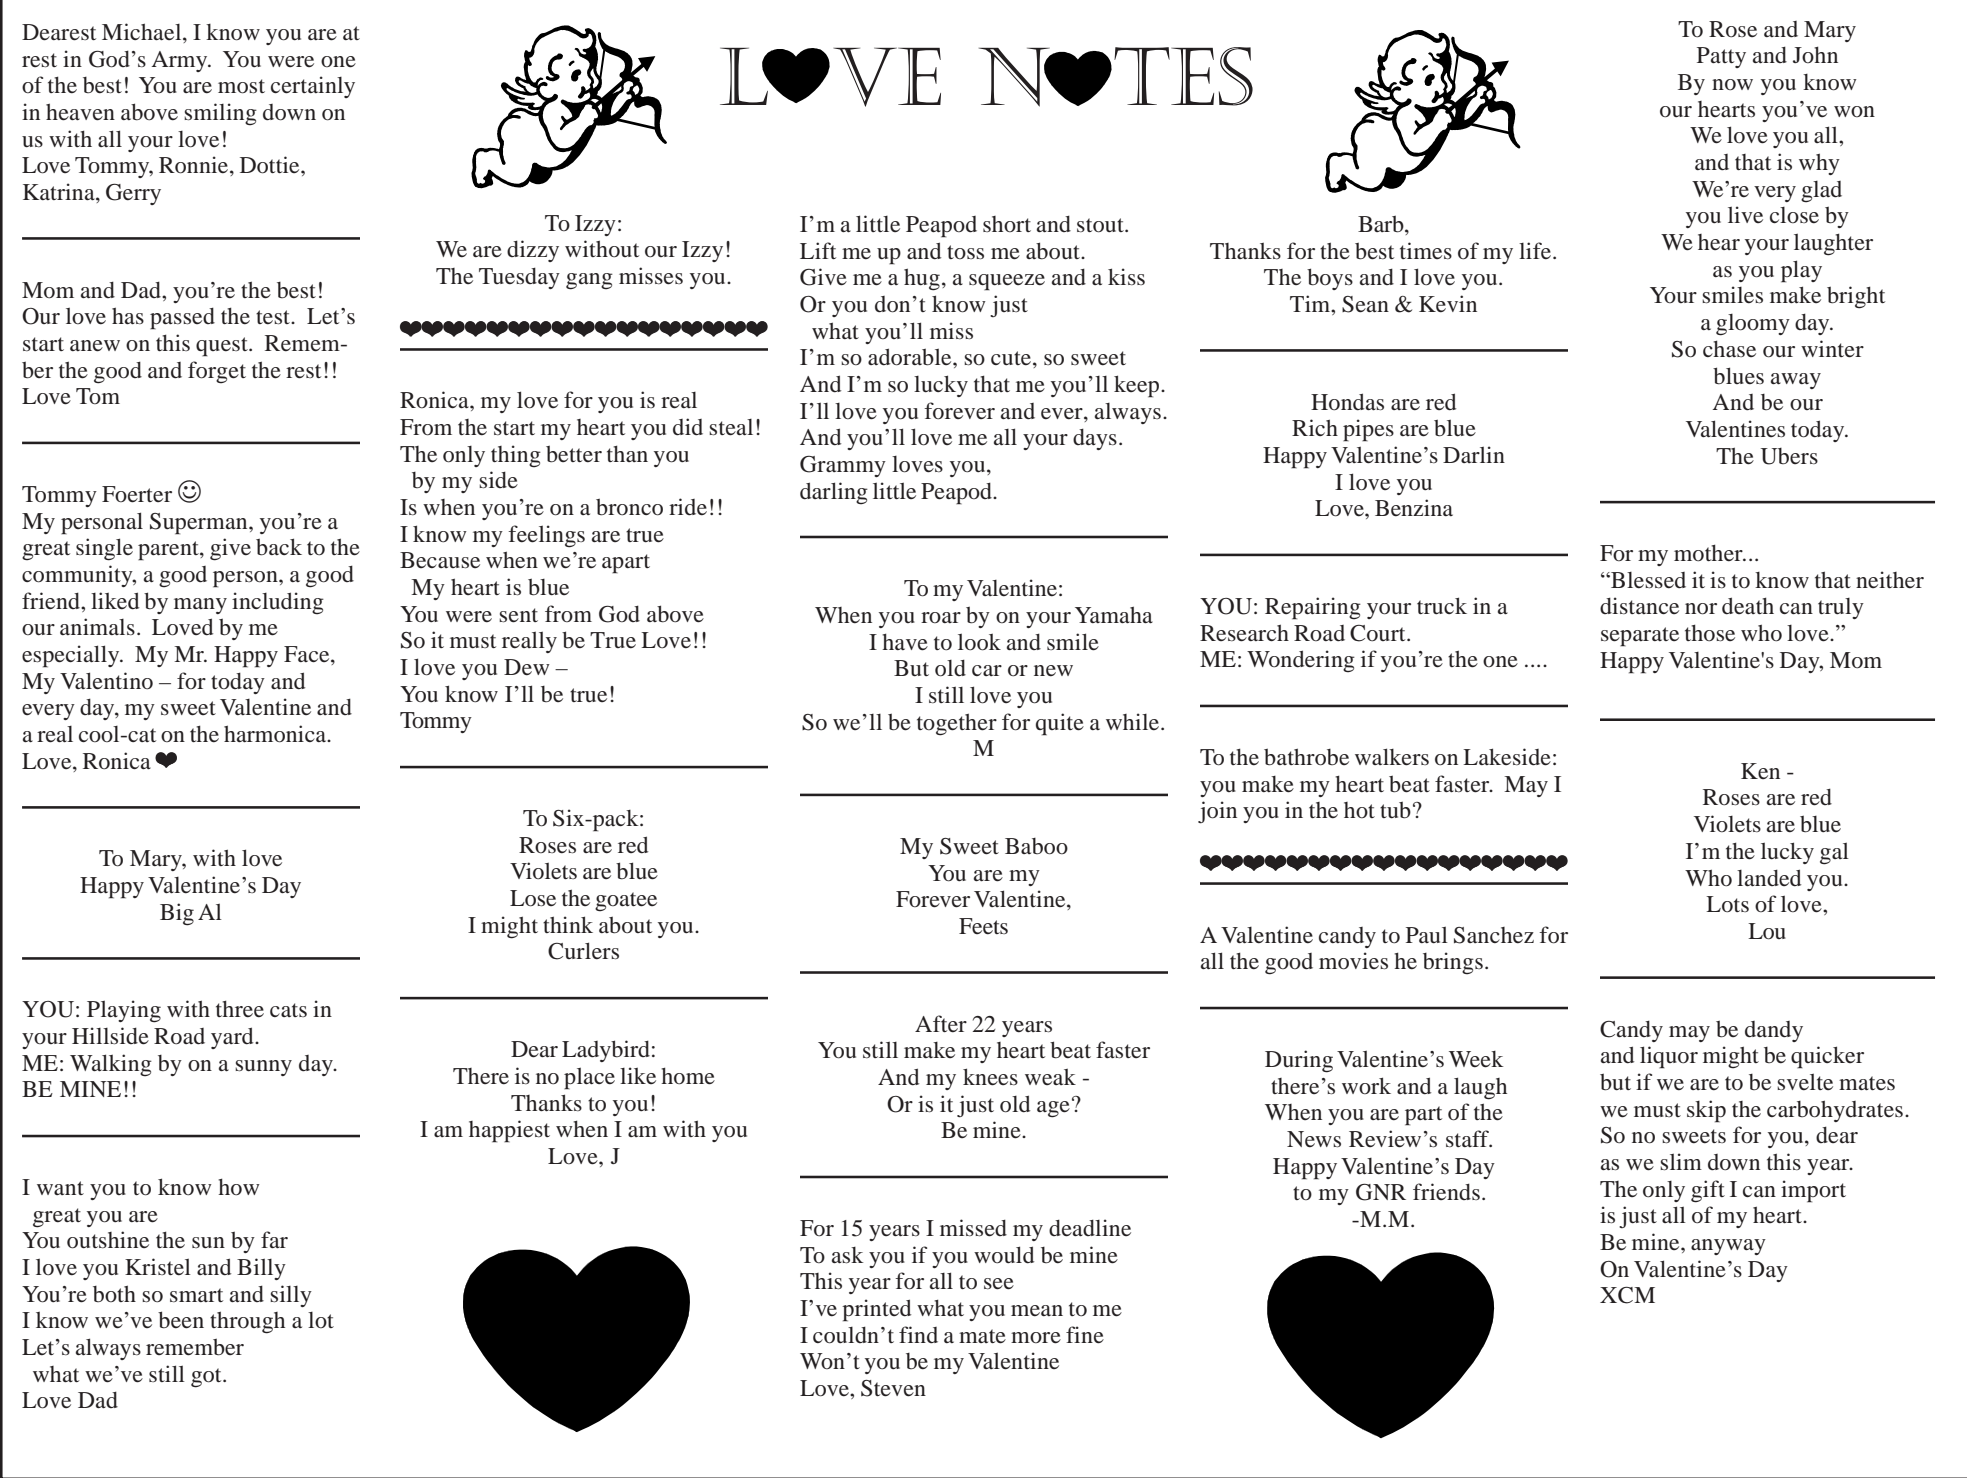 LOVE NOTES
Dearest Michael, I know you are at
rest in God's Army.  You were one
of the best!  You are most certainly
in heaven above smiling down on
us with all your love!
Love Tommy, Ronnie, Dottie,
Katrina, Gerry
Mom and Dad, you're the best!
Our love has passed the test.  Let's
start anew on this quest.  Remem-
ber the good and forget the rest!!
Love Tom
Tommy Foerter ☺
My personal Superman, you're a
great single parent, give back to the
community, a good person, a good
friend, liked by many including
our animals.  Loved by me
especially.  My Mr. Happy Face,
My Valentino – for today and
every day, my sweet Valentine and
a real cool-cat on the harmonica.
Love, Ronica ❤
To Mary, with love
Happy Valentine's Day
Big Al
YOU: Playing with three cats in
your Hillside Road yard.
ME: Walking by on a sunny day.
BE MINE!!
I want you to know how
great you are
You outshine the sun by far
I love you Kristel and Billy
You're both so smart and silly
I know we've been through a lot
Let's always remember
what we've still got.
Love Dad
To Izzy:
We are dizzy without our Izzy!
The Tuesday gang misses you.
Ronica, my love for you is real
From the start my heart you did steal!
The only thing better than you
by my side
Is when you're on a bronco ride!!
I know my feelings are true
Because when we're apart
My heart is blue
You were sent from God above
So it must really be True Love!!
I love you Dew –
You know I'll be true!
Tommy
To Six-pack:
Roses are red
Violets are blue
Lose the goatee
I might think about you.
Curlers
Dear Ladybird:
There is no place like home
Thanks to you!
I am happiest when I am with you
Love, J
I'm a little Peapod short and stout.
Lift me up and toss me about.
Give me a hug, a squeeze and a kiss
Or you don't know just
what you'll miss
I'm so adorable, so cute, so sweet
And I'm so lucky that me you'll keep.
I'll love you forever and ever, always.
And you'll love me all your days.
Grammy loves you,
darling little Peapod.
To my Valentine:
When you roar by on your Yamaha
I have to look and smile
But old car or new
I still love you
So we'll be together for quite a while.
M
My Sweet Baboo
You are my
Forever Valentine,
Feets
After 22 years
You still make my heart beat faster
And my knees weak -
Or is it just old age?
Be mine.
For 15 years I missed my deadline
To ask you if you would be mine
This year for all to see
I've printed what you mean to me
I couldn't find a mate more fine
Won't you be my Valentine
Love, Steven
Barb,
Thanks for the best times of my life.
The boys and I love you.
Tim, Sean & Kevin
Hondas are red
Rich pipes are blue
Happy Valentine's Darlin
I love you
Love, Benzina
YOU: Repairing your truck in a
Research Road Court.
ME: Wondering if you're the one ....
To the bathrobe walkers on Lakeside:
you make my heart beat faster.  May I
join you in the hot tub?
A Valentine candy to Paul Sanchez for
all the good movies he brings.
During Valentine's Week
there's work and a laugh
When you are part of the
News Review's staff.
Happy Valentine's Day
to my GNR friends.
-M.M.
To Rose and Mary
Patty and John
By now you know
our hearts you've won
We love you all,
and that is why
We're very glad
you live close by
We hear your laughter
as you play
Your smiles make bright
a gloomy day.
So chase our winter
blues away
And be our
Valentines today.
The Ubers
For my mother...
“Blessed it is to know that neither
distance nor death can truly
separate those who love.”
Happy Valentine's Day, Mom
Ken -
Roses are red
Violets are blue
I'm the lucky gal
Who landed you.
Lots of love,
Lou
Candy may be dandy
and liquor might be quicker
but if we are to be svelte mates
we must skip the carbohydrates.
So no sweets for you, dear
as we slim down this year.
The only gift I can import
is just all of my heart.
Be mine, anyway
On Valentine's Day
XCM